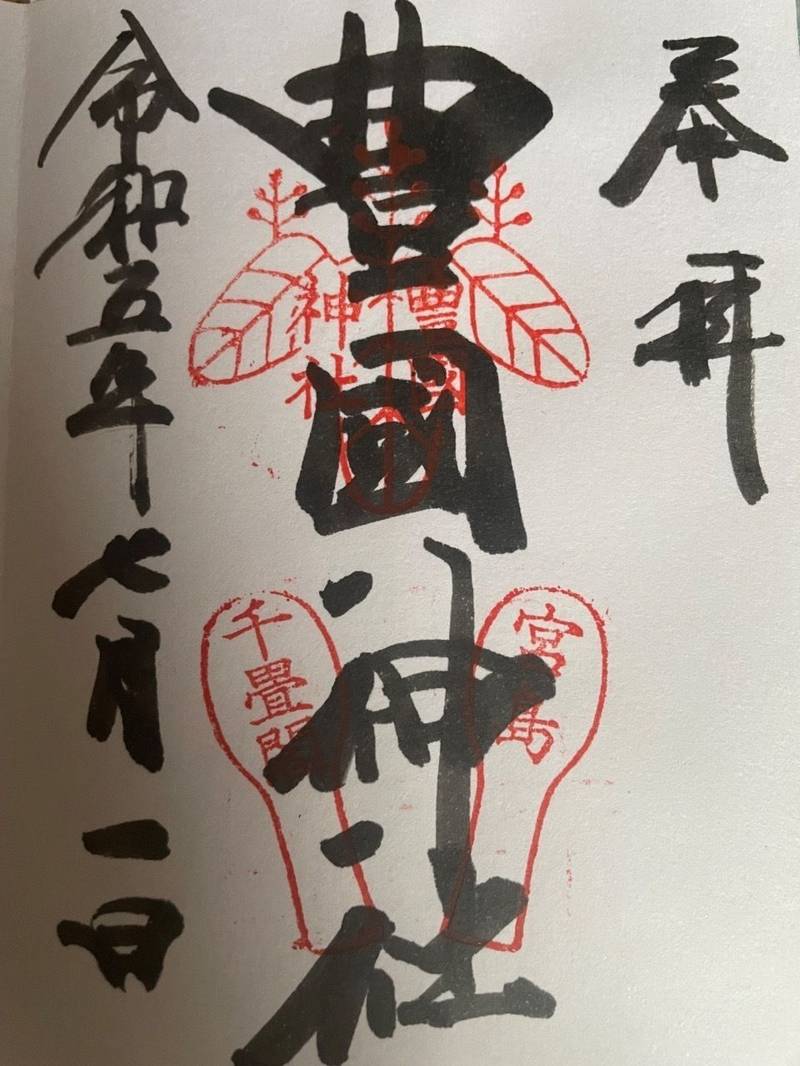 奉拝
豊國神社
豊國
神社
宮島
千畳閣
令和五年七月一日